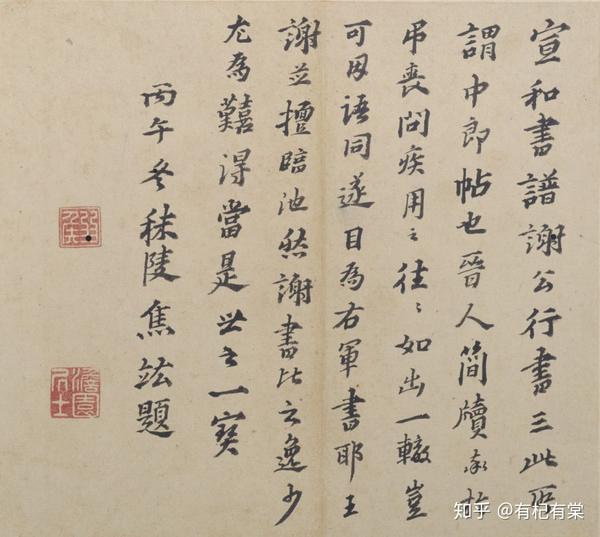 宣和書譜謝公行書三此所
謂中郎帖也晉人簡牘於
弔喪問疾用之往〻如出一轍豈
可因語同遂目為右軍書耶王
謝並擅臨池然謝書比之逸少
尤為難得當是世之一寶
丙午冬秣陵焦竑題
澹園居士
知乎 @有杞有棠